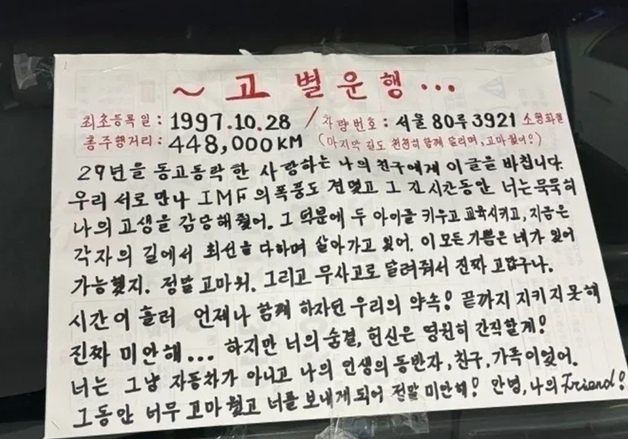 ~ 고 별 운 행 ...
최초등록일 : 1997.10.28 / 차량번호 : 서울 80루 3921 소형화물
총주행거리 : 448,000 KM (마지막 길도 천천히 함께 달리며, 고마웠어!)
29년을 동고동락한 사랑하는 나의 친구에게 이 글을 바칩니다.
우리 서로 만나 IMF의 폭풍도 견뎠고 그 긴 시간동안 너는 묵묵히
나의 고생을 감당해줬어. 그 덕분에 두 아이를 키우고 교육시키고, 지금은
각자의 길에서 최선을 다하며 살아가고 있어. 이 모든 기쁨은 네가 있어
가능했지. 정말 고마워. 그리고 무사고로 달려줘서 진짜 고맙구나.
시간이 흘러 언제나 함께 하자던 우리의 약속! 끝까지 지키지 못해
진짜 미안해... 하지만 너의 숨결, 헌신은 영원히 간직할게!
너는 그냥 자동차가 아니고 나의 인생의 동반자, 친구, 가족이었어.
그동안 너무 고마웠고 너를 보내게 되어 정말 미안해! 안녕, 나의 Friend!